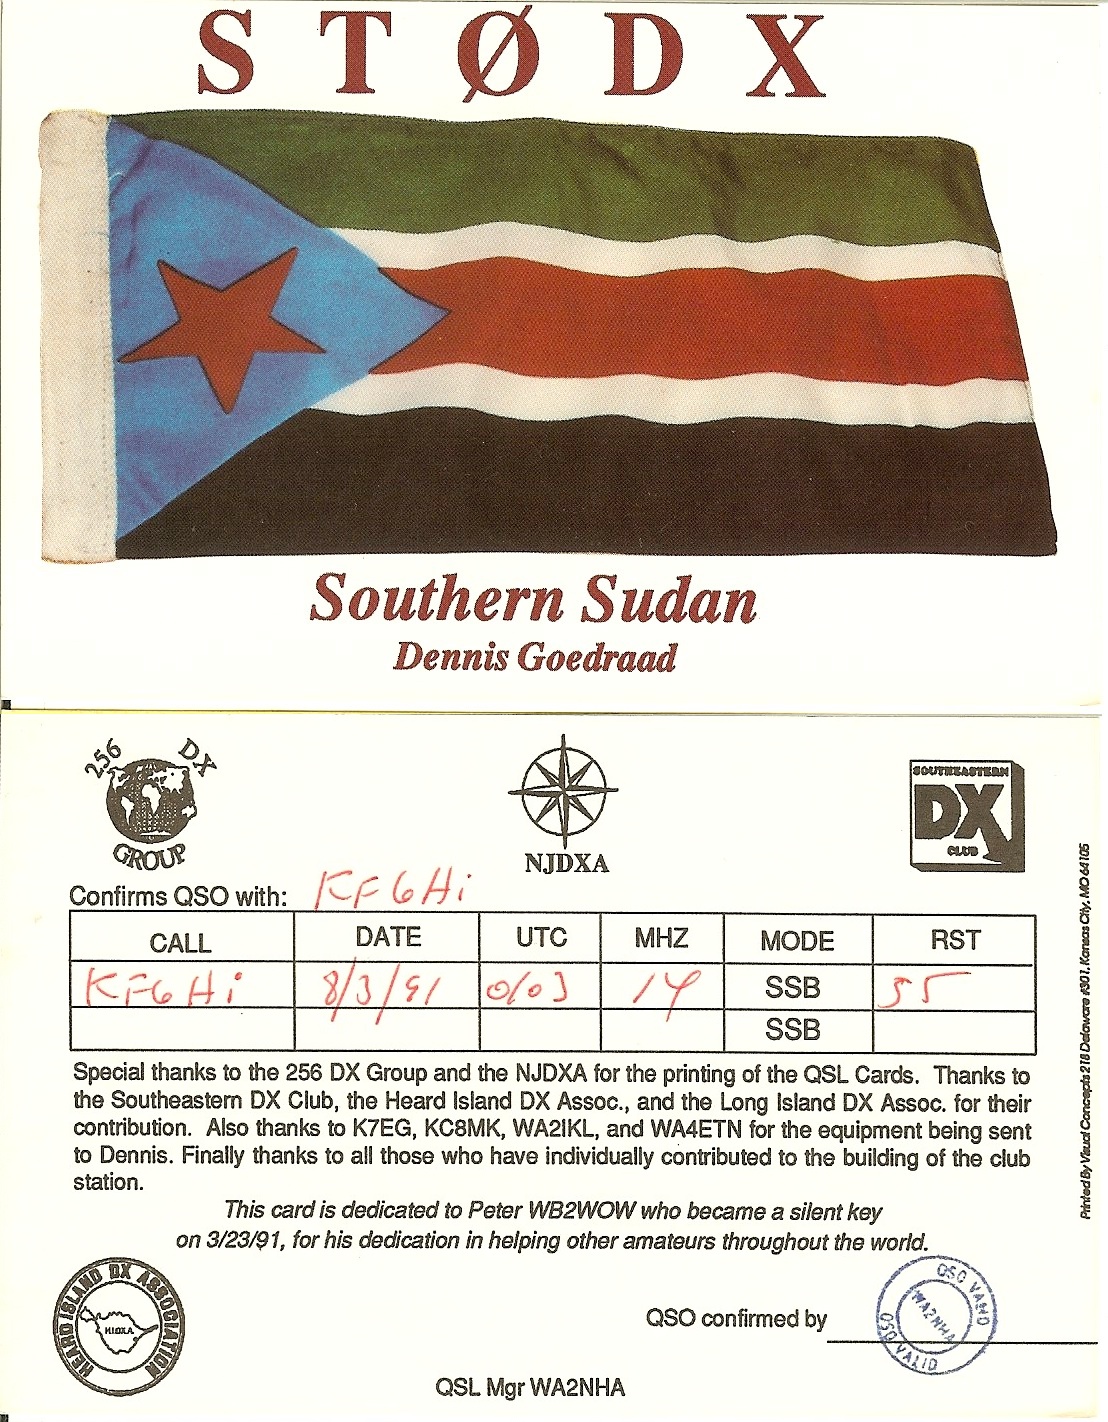 STØDX
Southern Sudan
Dennis Goedraad
256 DX
GROUP
NJDXA
SOUTHEASTERN
DX
CLUB
Confirms QSO with: KF6Hi
CALL DATE UTC MHZ MODE RST
KF6Hi 8/3/91 0103 14 SSB 55
SSB
Special thanks to the 256 DX Group and the NJDXA for the printing of the QSL Cards. Thanks to
the Southeastern DX Club, the Heard Island DX Assoc., and the Long Island DX Assoc. for their
contribution. Also thanks to K7EG, KC8MK, WA2IKL, and WA4ETN for the equipment being sent
to Dennis. Finally thanks to all those who have individually contributed to the building of the club
station.
This card is dedicated to Peter WB2WOW who became a silent key
on 3/23/91, for his dedication in helping other amateurs throughout the world.
HEARD ISLAND DX ASSOCIATION
H.I.DX.A.
QSO confirmed by
QSO VALID
WA2NHA
QSO VALID
QSL Mgr WA2NHA
Printed By Visual Concepts 2118 Delaware #301, Kansas City, MO 64105